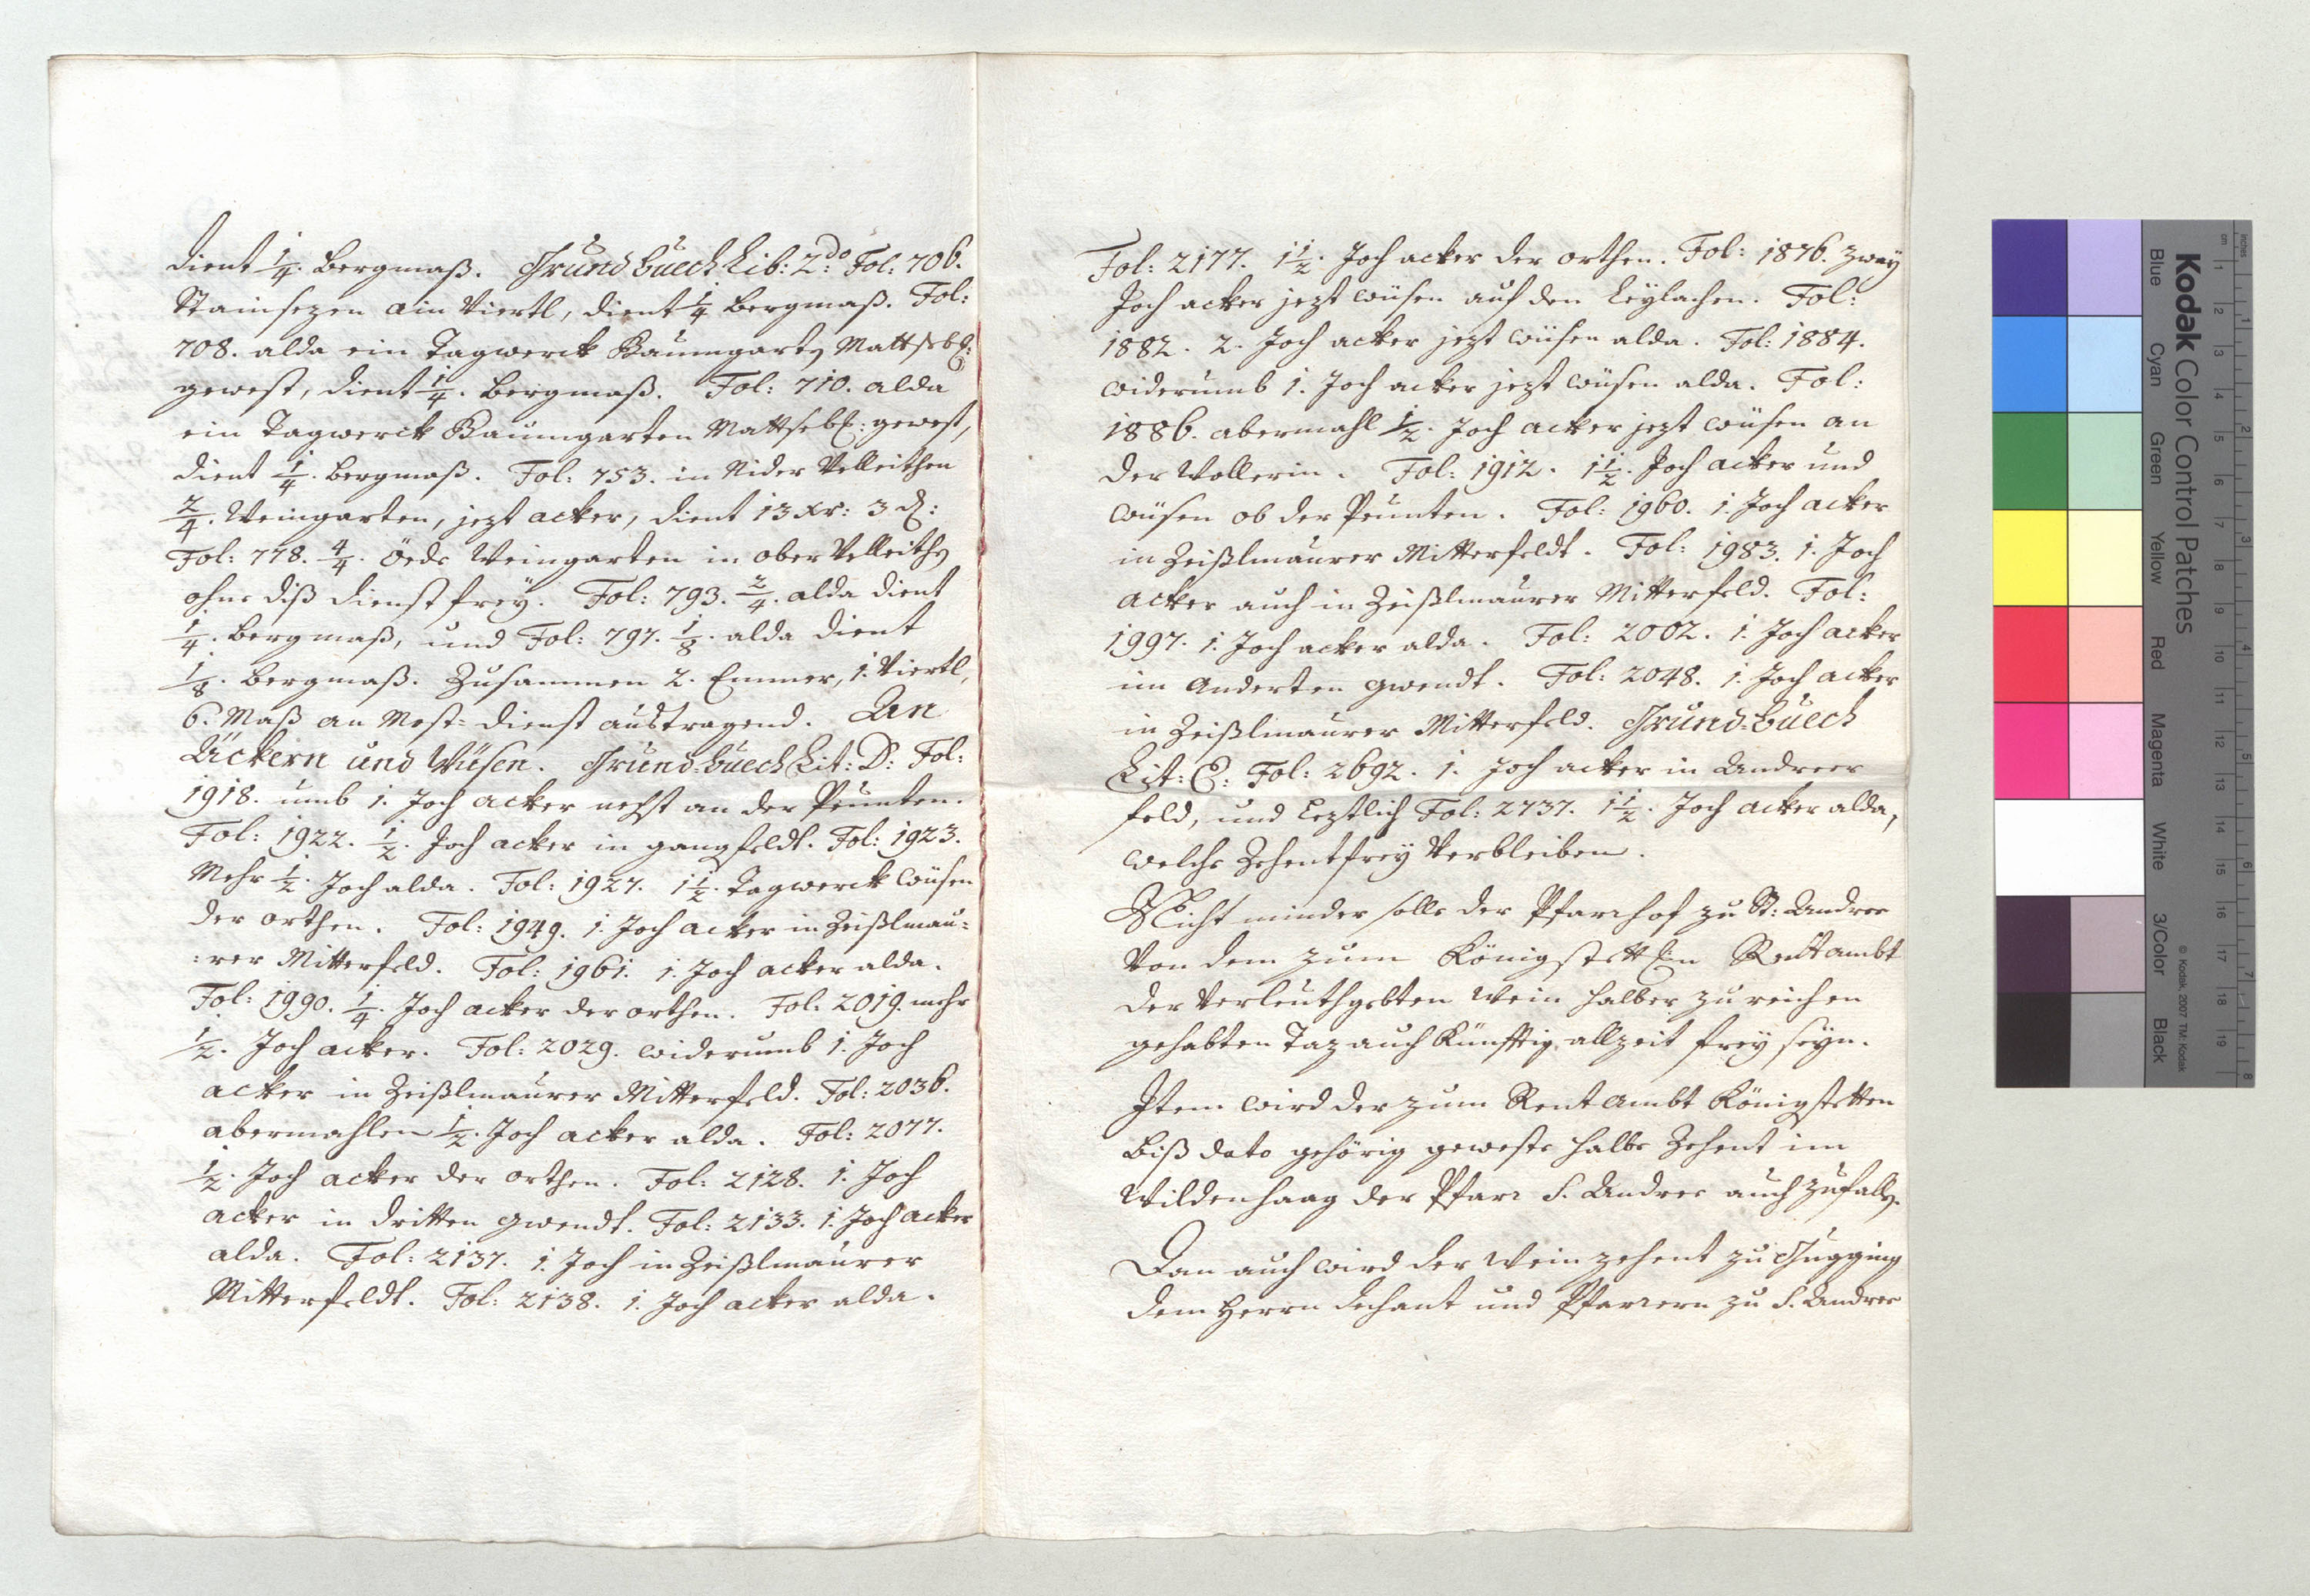 dient 1/4. Bergmaß. Grundbuech Lib: 2do: Fol: 706.
Stainsezen ain Viertl, dient 1/4 Bergmaß. Fol:
708. alda ein Tagwerck Baumgarten
gewest, dient 1/4. Bergmaß. Fol: 710. alda
ein Tagwerck Baumgarten gewest,
dient 1/4. Bergmaß. Fol: 753. in Nider Velleithen
2/4. Weingarten, jezt acker, dient 13 xr: 3 d:
Fol: 778. 4/4. öede Weingarten in ober Velleithen
ohne diß dienstfrey. Fol: 793. 2/4. alda dient
1/4. Bergmaß, und Fol: 797. 1/8. alda dient
1/8. Bergmaß. Zusammen 2. Emmer, 1. Viertl,
6. Maß an Most-dienst austragend. An
Äckern und Wüsen. Grund-buech Lit: D: Fol:
1918. umb 1. Joch acker nechst an der Peunten.
Fol: 1922. 1/2. Joch acker in gangfeldt. Fol: 1923.
Mehr 1/2. Joch alda. Fol: 1927. 1 1/2. Tagwerck wüsen
der orthen. Fol: 1949. 1. Joch acker in Zeißlmau-
:rer Mitterfeld. Fol: 1961. 1. Joch acker alda.
Fol: 1990. 1/4. Joch acker der orthen. Fol: 2019. mehr
1/2. Joch acker. Fol: 2029. widerumb 1. Joch
acker in Zeißlmaurer Mitterfeld. Fol: 2036.
abermahlen 1/2. Joch acker alda. Fol: 2077.
1/2. Joch acker der orthen. Fol: 2128. 1. Joch
acker in dritten gwendt. Fol: 2133. 1. Joch acker
alda. Fol: 2137. 1. Joch in Zeißlmaurer
Mitterfeldt. Fol: 2138. 1. Joch acker alda.
Fol: 2177. 1 1/2. Joch acker der orthen. Fol: 1876. zway
Joch acker jezt wüsen auf den Leylachen. Fol:
1882. 2. Joch acker jezt wüsen alda. Fol: 1884.
widerumb 1. Joch acker jezt wüsen alda. Fol:
1886. abermahl 1/2. Joch acker jezt wüsen an
der Wollerin. Fol: 1912. 1 1/2. Joch acker und
wüsen ob der Peunten. Fol: 1960. 1. Joch acker
in Zeißlmaurer Mitterfeldt. Fol: 1983. 1. Joch
acker auch in Zeißlmaurer Mitterfeld. Fol:
1997. 1. Joch acker alda. Fol: 2002. 1. Joch acker
im anderten gwendt. Fol: 2048. 1. Joch acker
in Zeißlmaurer Mitterfeld. Grund-buech
Lit: E: Fol: 2692. 1. Joch acker in Andreer
feld, und leztlich Fol: 2737. 1 1/2. Joch acker alda,
welche Zehentfrey Verbleiben.
Nicht minder solle der Pfarrhof zu St: Andree
Von dem zum Königstett:n Rentambt
der Verleuthgebten Wein halber zu reichen
gehabten Taz auch künfftig allzeit frey seyn.
Item wird der zum Rentambt Königstetten
biß dato gehörig geweste halbe Zehent im
Wildenhaag der Pfarr S. Andree auch zufallen.
Dan auch wird der Weinzehent zu Gugging
dem Herrn dechant und Pfarrern zu S. Andree
Kodak Color Control Patches
© Kodak, 2007 TM: Kodak
Blue Cyan Green Yellow Red Magenta White 3/Color Black
inches 1 2 3 4 5 6 7 8
cm 1 2 3 4 5 6 7 8 9 10 11 12 13 14 15 16 17 18 19